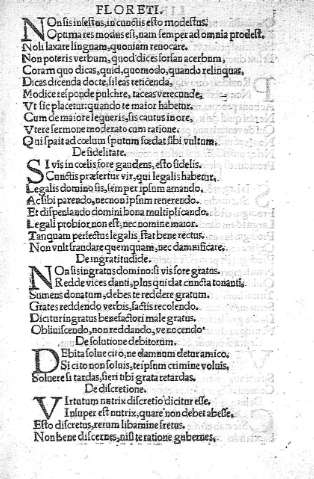 FLORETI.
NOn sis infestus, in cunctis esto modestus.
Optima res modus est, nam semper ad omnia prodest.
Noli laxare linguam, quoniam reuocare.
Non poteris verbum, quod dices forsan acerbum,
Coram quo dicas, quid, quomodo, quando relinquas,
Dicas dicenda docte, sileas reticenda,
Modice responde pulchre, taceas verecunde,
Vt sic placetur: quando te maior habetur.
Cum de maiore loqueris, sis cautus in ore,
Vtere sermone moderato cum ratione.
Qui spait ad cœlum sputum fœdat sibi vultum.
De fidelitate.
SI vis in cœlis fore gaudens, esto fidelis.
Cunctis præsertur vir, qui legalis habetur,
Legalis domino sis, semper ipsum amando,
Ac sibi parendo, necnon ipsum renerendo.
Et dispensando domini bona multiplicando.
Legali probior non est, nec nomine maior.
Tanquam perfectus legalis stat bene rectus.
Non vult fraudare quemquam, nec damnificare.
De ingratitudide.
NOn sis ingratus domino: si vis fore gratus.
Redde vices danti, plus qui dat cuncta tonanti,
Sumens donatum, debes te reddere gratum.
Grates reddendo verbis, factis recolendo.
Dicitur ingratus benefactori male gratus.
Obliuiscendo, non reddendo, ve nocendo.
De solutione debitorum.
DEbita solue cito, ne damnum detur amico.
Si cito non soluis, te ipsum crimine voluis,
Soluere si tardas, fieri tibi grata retardas.
De discretione.
VIrtutum nutrix discretio dicitur esse.
Insuper est nutrix, quare non debet abesse.
Esto discretus, rerum libamine fretus.
Non bene discernes, nisi te ratione gubernes,